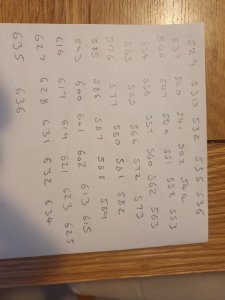 529 530 532 535 536
537 540 541 542 544
546 547 549 551 552 553
554 556 557 560 562 563
565 565 566 572 573
576 577 580 581 582
585 586 587 588 589
593 600 601 602 613 615
616 617 619 621 623 625
627 628 631 632 634
635 636